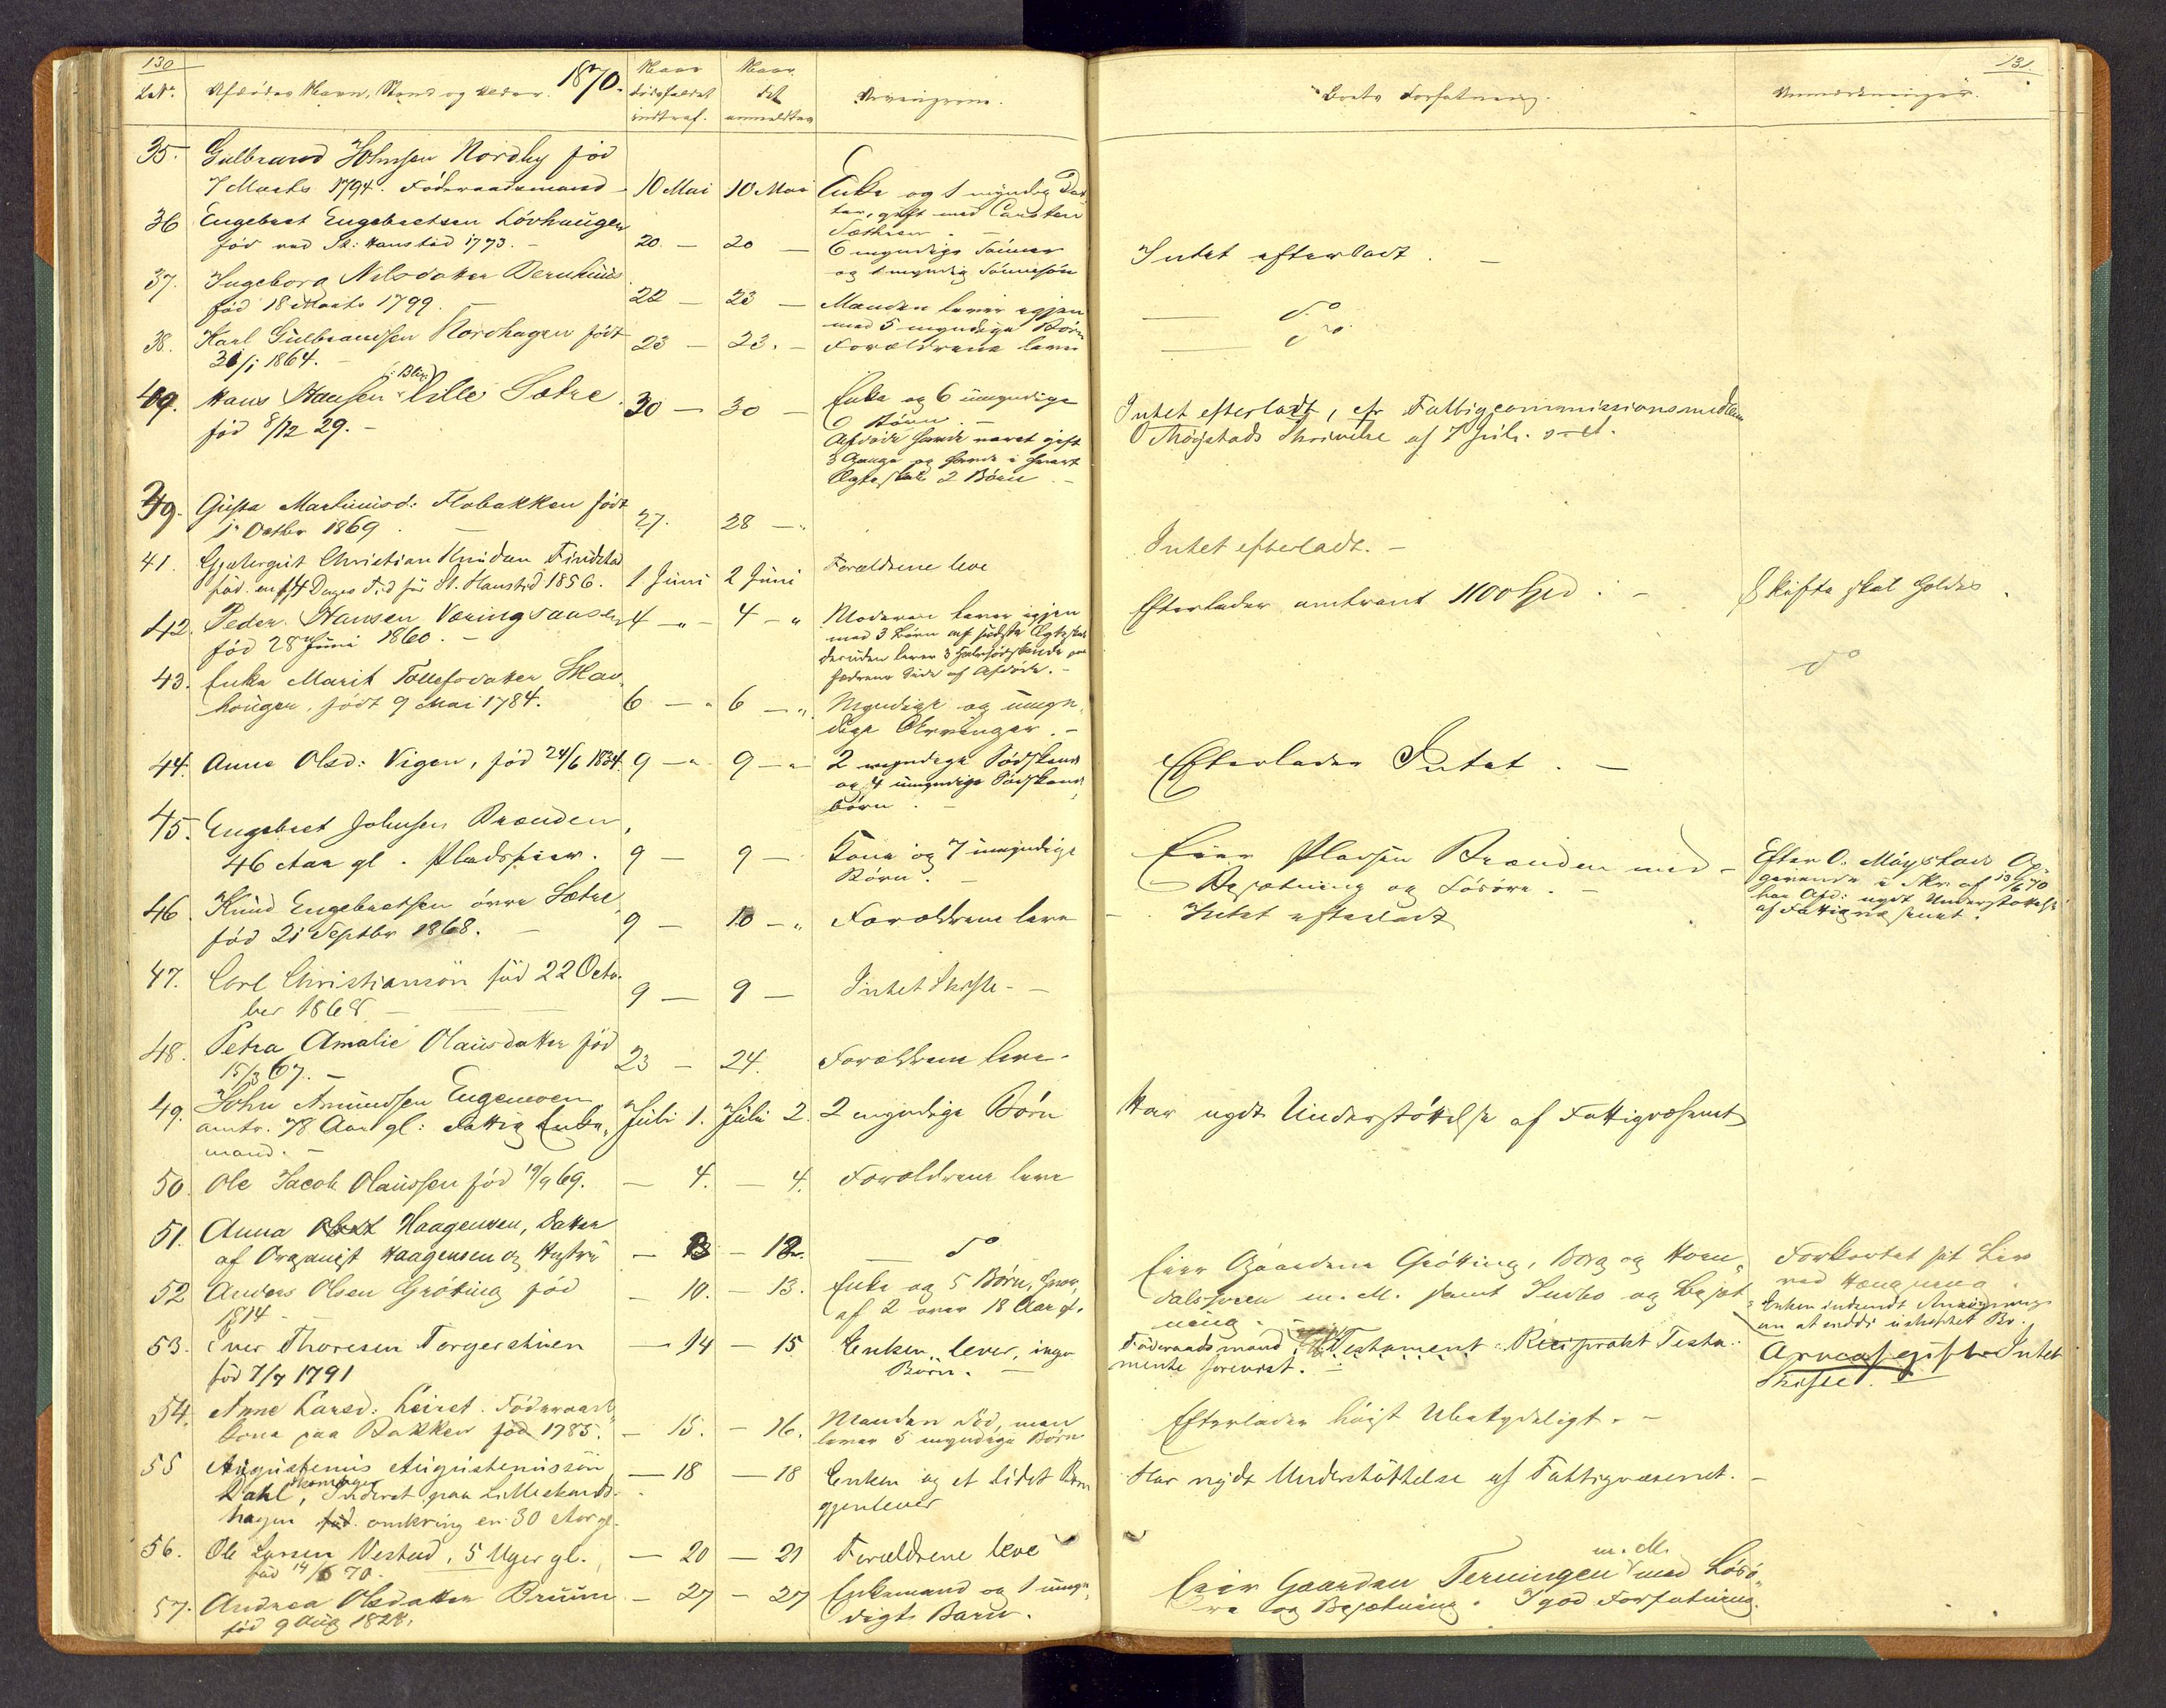 130
1870.
LNo. Afdødes Navn, Stand og Alder. Naar Dødsfaldet indtraf. Naar det anmeldtes Arvingerne. Boets Forfatning. Anmærkninger.
131.
35. Gulbrand Johnsen Nordby fød
7 Marts 1794. Föderaadsmand 10 Mai 10 Mai Enke og 1 myndig Dat
ter, gift med Carsten
Sæthren. -
36 Engebret Engebretsen Lövhaugen
fød ved St: Hanstid 1793. - 20. - 20 - 6 myndige Sønner
og 1 myndig Sønnesøn
Intet efterladt. -
37. Ingeborg Nilsdatter
fød 18 Marts 1799. - 22 - 23 - Manden lever igjen
med 5 myndige Børn
do
38. Karl Gulbrandsen Nordhagen født
1864. - 23 - 23. - Forældrene lever
do
Hans Hansen lille Sætre
fød 8/12 29. - 30 - 30 - Enke og 6 umyndige
Børn. -
Afdøde havde været gift
3 Gange og havde i hvert
Ægteskab 2 Børn -
Intet efterladt, efr Fattigcommissionsmedlem
O Mögstads Skrivelse af 7 Juli.
Gusta Martinusd: Flobakken født
1 Octbr 1869. 27. 28 -"
Intet efterladt. -
41. Christian Knudsen Findstad
fød en 14 Dages Tid før St. Hanstid 1856. 1 Juni 2 Juni Forældrene leve
Efterlader omtrent 1100 Spd. - Skifte skal holdes
42. Peder Hansen Væringsaasen
fød 28 Juni 1860. - 4 -" 4 -" Moderen lever igjen
med 3 Børn af sidste Ægteskab
desuden lever 3 Halvsødskende paa
Fædrene Side af Afdøde. -
do
43. Enke Marit Tollefsdatter Skav
haugen, født 9 Mai 1784. 6 -" 6 -" Myndige og umyn
dige Arvinger. -
44. Anne Olsd: Vigen, fød 24/6 1834. 9 -" 9 -" 2 myndige Södskende
og 4 umyndige Södskende
børn. -
Efterlader Intet. -
45. Engebret Johnsen Brænden,
46 Aar gl. Pladseier. 9 - 9 - Kone og 7 umyndige
Børn. -
Eier Pladsen Brænden med
Besætning og Løsöre. -
Efter O. Mögstads Op
givende i Skr. af 13/6 70
har Afd: nydt Understøttelse
af Fattigvæsenet.
46. Knud Engebretsen övre Sætre
fød 21 Septbr 1868. - 9 - 10 -" Forældrene leve
Intet efterladt
47. Carl Christiansön fød 22 Octo
ber 1868 - 9 - 9 - Intet Skifte -
48. Petra Amalie Olausdatter fød
15/3 67. - 23 - 24. Forældrene leve.
49. John Amundsen Engemoen
omtr. 78 Aar gl: Fattig Enke
mand. - Juli 1. Juli 2. 2 myndige Børn
Har nydt Understöttelse af Fattigvæsenet
50. Ole Jacob Olaussen fød 19/9 69. - 4. - 4. Forældrene leve
51. Anna Haagensen, Datter
af Organist Haagensen og Hustru - 13 - 12. do
52 Anders Olsen Gröting fød
1814 - - 10. - 13. Enke og 5 Børn, hvor
af 2 over 18 Aar gl.
Eier Gaardene Grötting, Borg og Horn
dalsveen m. M. samt Indbo og Besæt
ning. -
Forkortet sit Liv
ved Hængning.
Enken indsendt Ansögning
om at sidde i uskiftet Bo.
53. Iver Thoresen Torgerstuen
fød 7/7 1791 - 14 - 15 Enken lever, ingen
Børn. -
Föderaadsmand. Testament: Reciprokt Testa:
mente forevist. -
Arveafgift Intet
Skifte.
54. Anne Larsd: Leiret. Föderaads
kone paa Bakken fød 1785. - 15. - 16. Manden død, men
lever 5 myndige Børn
Efterlader höist Ubetydeligt. -
55 Augustenius Augusteniussön
Dahl, Skomager Inderst paa Lilleskards
hagen fød omkring en 30 Aar gl. - 18 - 18 Enken og et lidet Barn
gjenlever
Har nydt Understöttelse af Fattigvæsenet. -
56. Ole Larsen Vestad, 5 Uger gl.
fød 14/6 70. - 20 - 21 Forældrene leve
57. Andrea Olsdatter Bruun
fød 9 Aug 1828. - 27 - 27 Enkemand og 1 umyn
digt Barn.
Eier Gaarden Terningen m. M. med Løsö
re og Besætning. I god Forfatning.